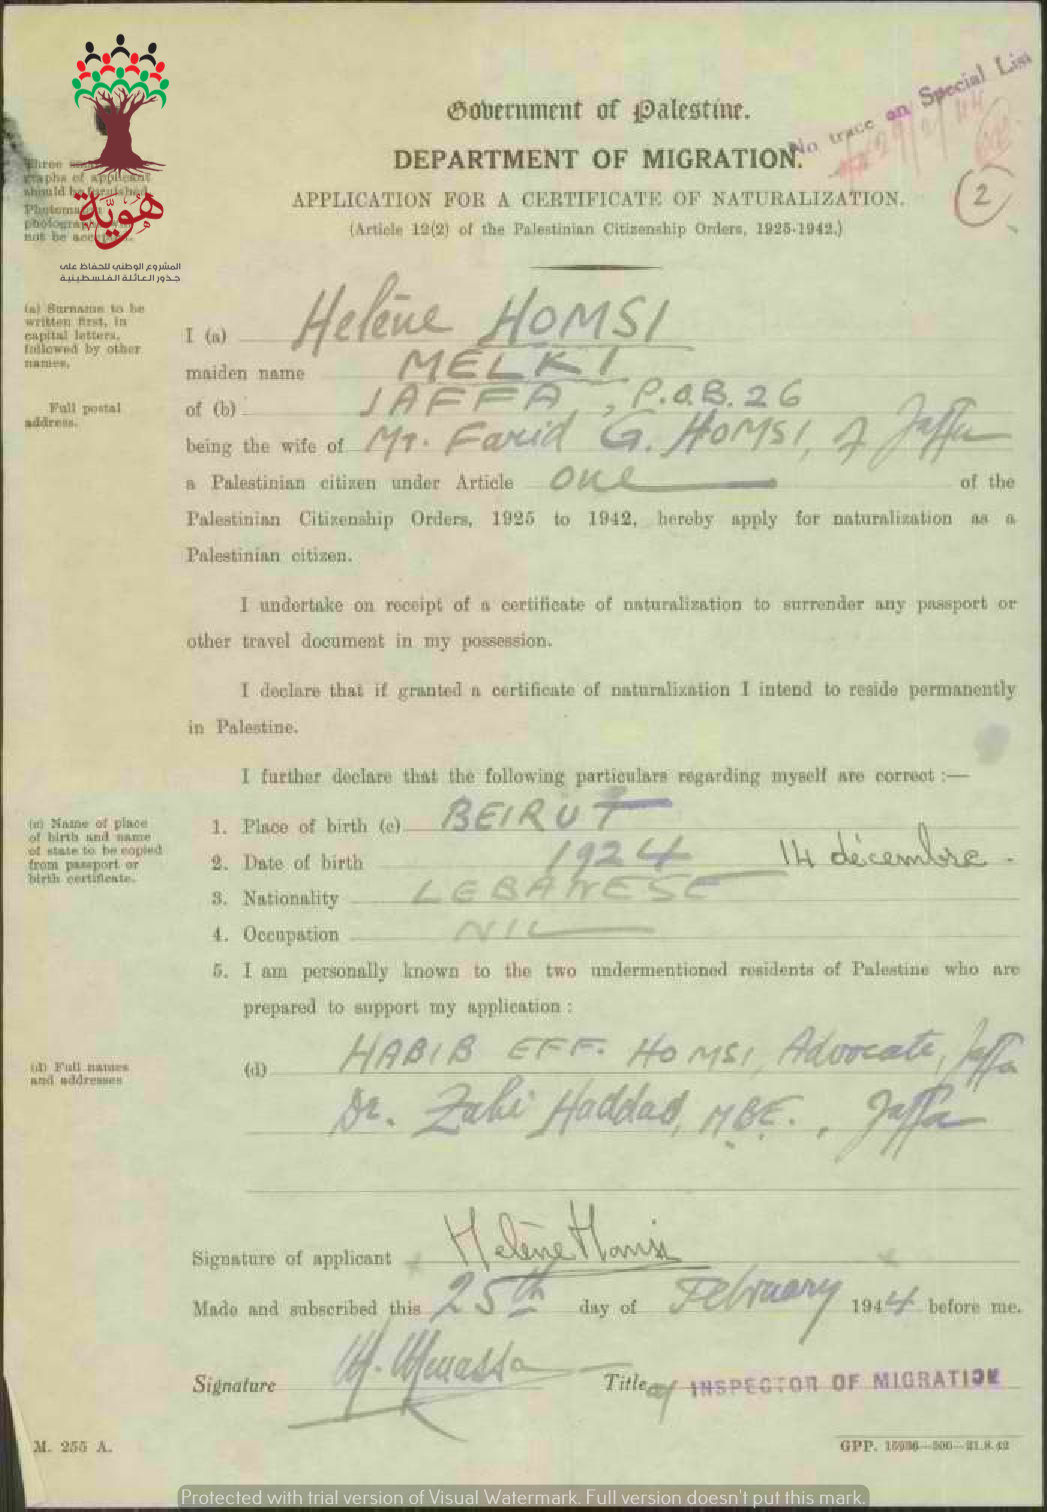 Government of Palestine.
DEPARTMENT OF MIGRATION.
No trace on Special List
29/2/44
2
APPLICATION FOR A CERTIFICATE OF NATURALIZATION.
(Article 12(2) of the Palestinian Citizenship Orders, 1925-1942.)
Three
graphs of applicant
should be furnished.
not be
هوية
المشروع الوطني للحفاظ على
جذور العائلة الفلسطينية
(a) Surname to be
written first, in
capital letters,
followed by other
names.
I (a) Helène HOMSI
maiden name MELKI
Full postal
address.
of (b) JAFFA, P.O.B. 26
being the wife of Mr. Farid G. HOMSI, of Jaffa
a Palestinian citizen under Article one of the
Palestinian Citizenship Orders, 1925 to 1942, hereby apply for naturalization as a
Palestinian citizen.
I undertake on receipt of a certificate of naturalization to surrender any passport or
other travel document in my possession.
I declare that if granted a certificate of naturalization I intend to reside permanently
in Palestine.
I further declare that the following particulars regarding myself are correct :—
(c) Name of place
of birth and name
of state to be copied
from passport or
birth certificate.
1. Place of birth (c) BEIRUT
2. Date of birth 1924 14 décembre -
3. Nationality LEBANESE
4. Occupation NIL
5. I am personally known to the two undermentioned residents of Palestine who are
prepared to support my application :
(d) Full names
and addresses
(d) HABIB EFF. HOMSI, Advocate, Jaffa
Dr. Zahi Haddad, MBE., Jaffa
Signature of applicant Helène Homsi
Made and subscribed this 25th day of February 1944 before me.
Signature
Title INSPECTOR OF MIGRATION
M. 255 A.
GPP. 15936—500—21.8.42
Protected with trial version of Visual Watermark. Full version doesn't put this mark.